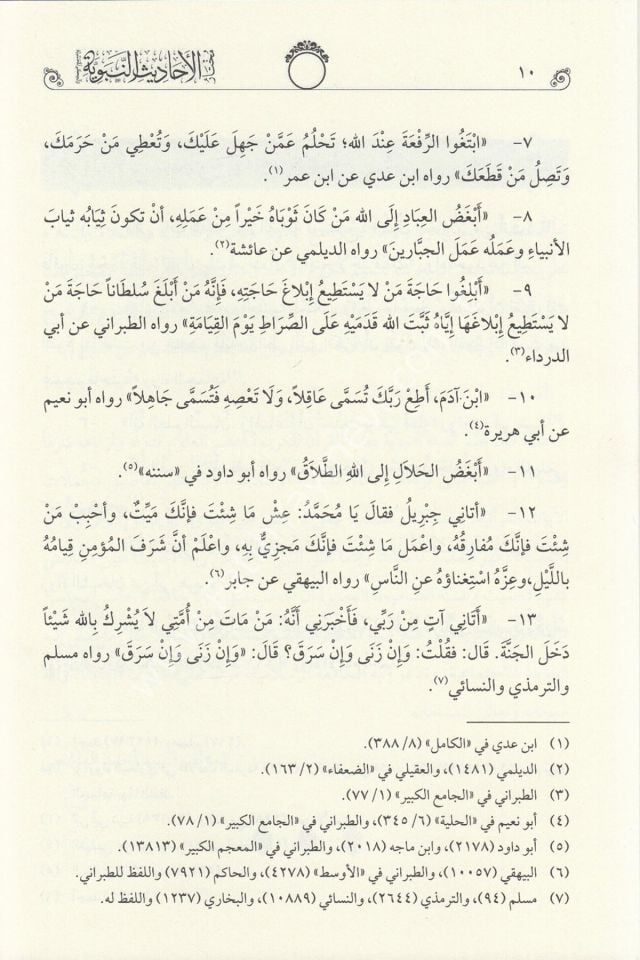 ١٠
الأحاديث النبوية
٧- «ابْتَغُوا الرِّفْعَةَ عِنْدَ الله؛ تَحْلُمُ عَمَّنْ جَهِلَ عَلَيْكَ، وَتُعْطِي مَنْ حَرَمَكَ،
وَتَصِلُ مَنْ قَطَعَكَ» رواه ابن عدي عن ابن عمر(١).
٨- «أَبْغَضُ العِبَادِ إِلَى الله مَنْ كَانَ ثَوْبَاهُ خَيْراً مِنْ عَمَلِهِ، أنْ تكونَ ثِيَابُه ثيابَ
الأنبياءِ وعَمَلُه عَمَلَ الجبَّارينَ» رواه الديلمي عن عائشة(٢).
٩- «أَبْلِغُوا حَاجَةَ مَنْ لا يَسْتَطِيعُ إِبْلاغَ حَاجَتِهِ، فَإِنَّهُ مَنْ أَبْلَغَ سُلطَاناً حَاجَةَ مَنْ
لا يَسْتَطِيعُ إِبْلاغَهَا إِيَّاهُ ثَبَّتَ الله قَدَمَيْهِ عَلَى الصِّرَاطِ يَوْمَ القِيَامَةِ» رواه الطبراني عن أبي
الدرداء(٣).
١٠- «ابْنَ آدَمَ، أَطِعْ رَبَّكَ تُسَمَّى عَاقِلاً، وَلَا تَعْصِهِ فَتُسَمَّى جَاهِلاً» رواه أبو نعيم
عن أبي هريرة(٤).
١١- «أَبْغَضُ الحَلَالِ إِلى اللهِ الطَّلَاقُ» رواه أبو داود في «سننه»(٥).
١٢- «أتانِي جِبْرِيلُ فقالَ يَا مُحَمَّدُ: عِشْ مَا شِئْتَ فإنَّكَ مَيِّتٌ، وأَحْبِبْ مَنْ
شِئْتَ فإنَّكَ مُفارِقُه، واعْمَل مَا شِئْتَ فإنَّكَ مَجزِيٌّ بِهِ، واعْلَمْ أنَّ شَرَفَ المُؤمِنِ قِيامُهُ
بالليْلِ،وعِزَّهُ اسْتِغناؤهُ عنِ النَّاسِ» رواه البيهقي عن جابر(٦).
١٣- «أَتَانِي آتٍ مِنْ رَبِّي، فَأَخْبَرَنِي أَنَّهُ: مَنْ مَاتَ مِنْ أُمَّتِي لاَ يُشْرِكُ بِالله شَيْئاً
دَخَلَ الجَنَّةَ. قال: فقُلْتُ: وَإِنْ زَنَى وَإِنْ سَرَقَ؟ قَالَ: «وَإِنْ زَنَى وَإِنْ سَرَقَ» رواه مسلم
والترمذي والنسائي(٧).
(١) ابن عدي في «الكامل» (٨/ ٣٨٨).
(٢) الديلمي (١٤٨١)، والعقيلي في «الضعفاء» (٢/ ١٦٣).
(٣) الطبراني في «الجامع الكبير» (١/ ٧٧).
(٤) أبو نعيم في «الحلية» (٦/ ٣٤٥)، والطبراني في «الجامع الكبير» (١/ ٧٨).
(٥) أبو داود (٢١٧٨)، وابن ماجه (٢٠١٨)، والطبراني في «المعجم الكبير» (١٣٨١٣).
(٦) البيهقي (١٠٠٥٧)، والطبراني في «الأوسط» (٤٢٧٨)، والحاكم (٧٩٢١) واللفظ للطبراني.
(٧) مسلم (٩٤)، والترمذي (٢٦٤٤)، والنسائي (١٠٨٨٩)، والبخاري (١٢٣٧) واللفظ له.